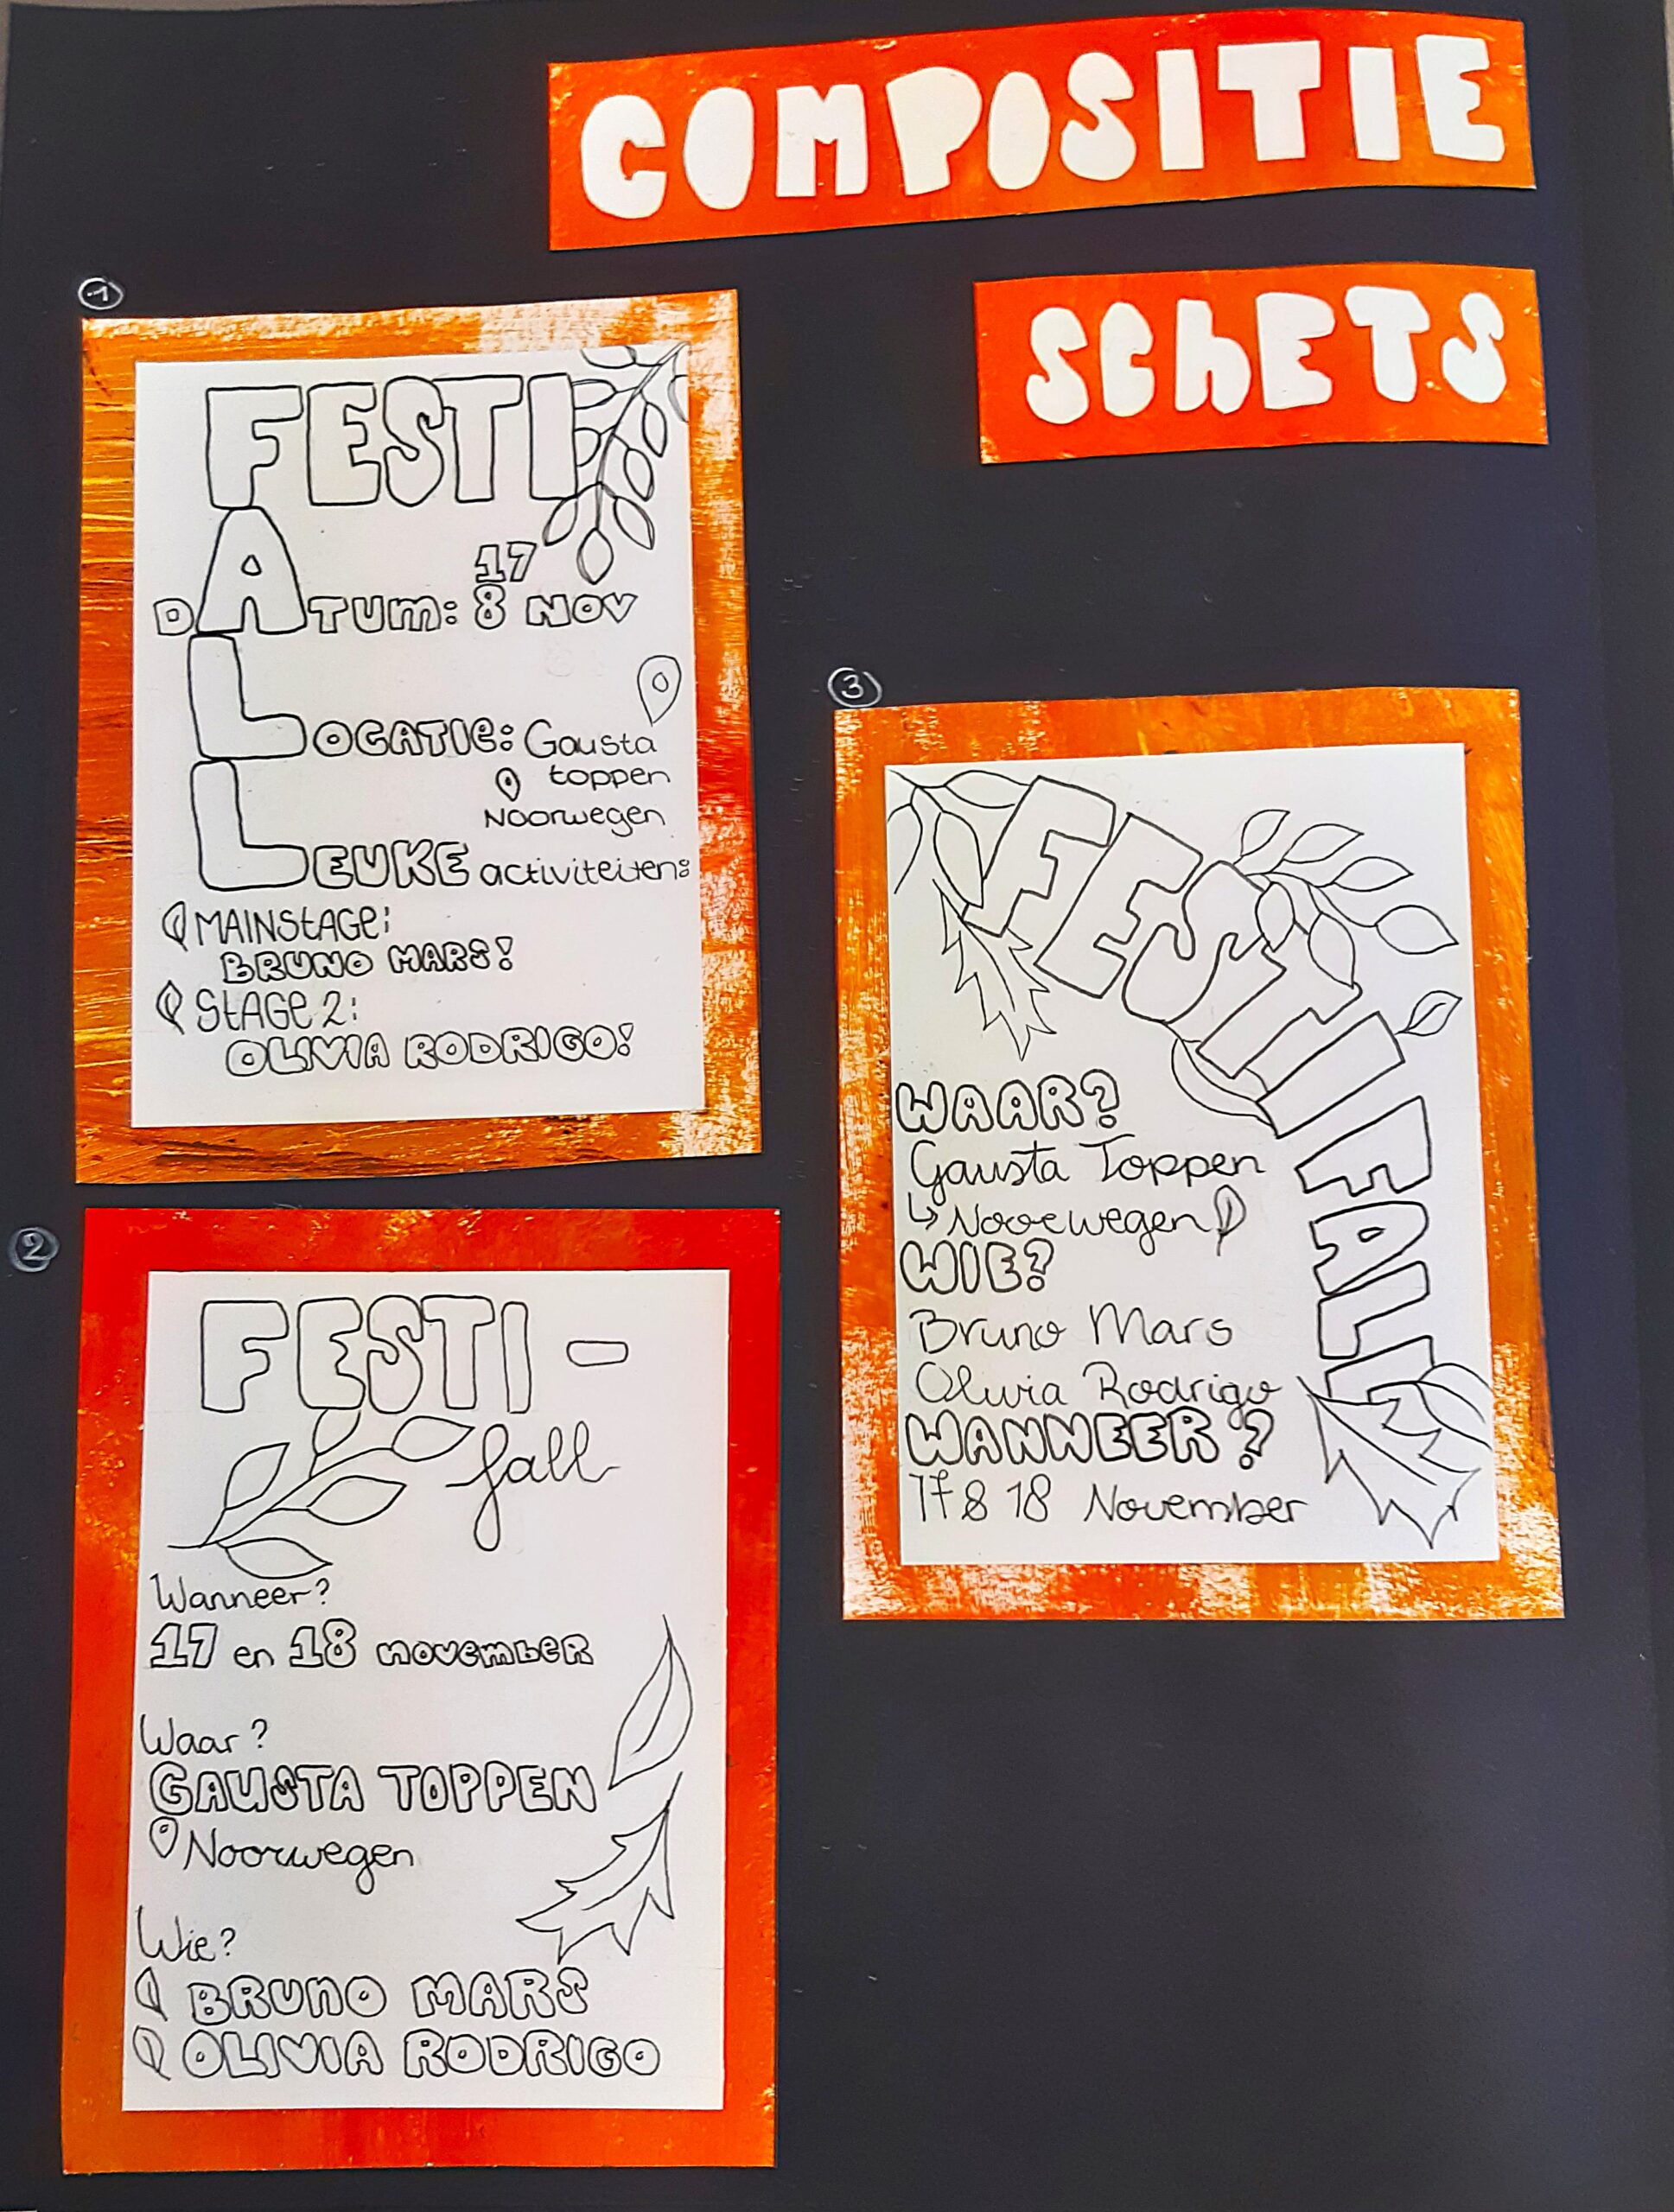 COMPOSITIE
SChETS
1
FESTI
A
17
DATUM: 8 NOV
LOCATIE: Gausta
toppen
Noorwegen
LEUKE activiteiten:
MAINSTAGE:
BRUNO MARS!
STAGE 2:
OLIVIA RODRIGO!
2
FESTI -
fall
Wanneer?
17 en 18 november
Waar?
GAUSTA TOPPEN
Noorwegen
Wie?
BRUNO MARS
OLIVIA RODRIGO
3
FESTIFALL
WAAR?
Gausta Toppen
↳ Noorwegen
WIE?
Bruno Mars
Olivia Rodrigo
WANNEER?
17 & 18 November